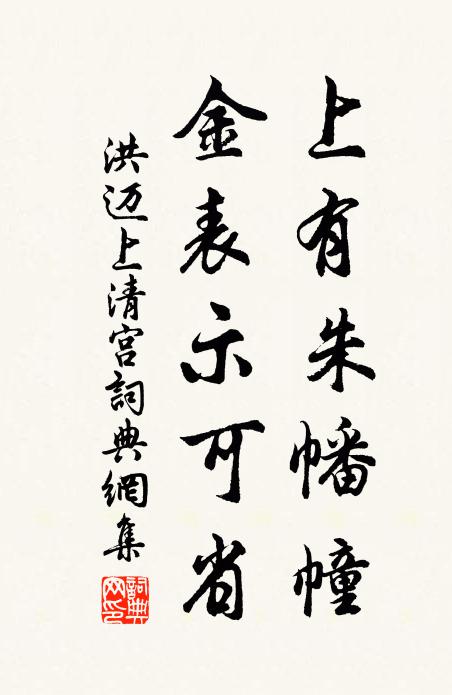 上有朱幡幢
金表示可省
洪迈上清宫詞典網集
詞典网印